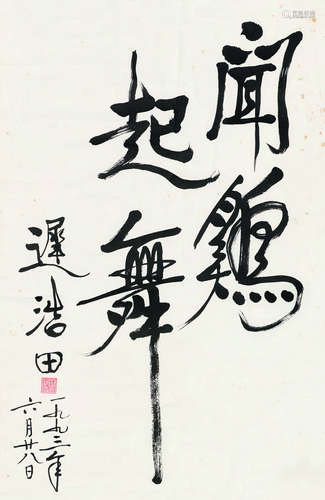 闻鷄
起舞
遲浩田
一九九三年
六月廿八日